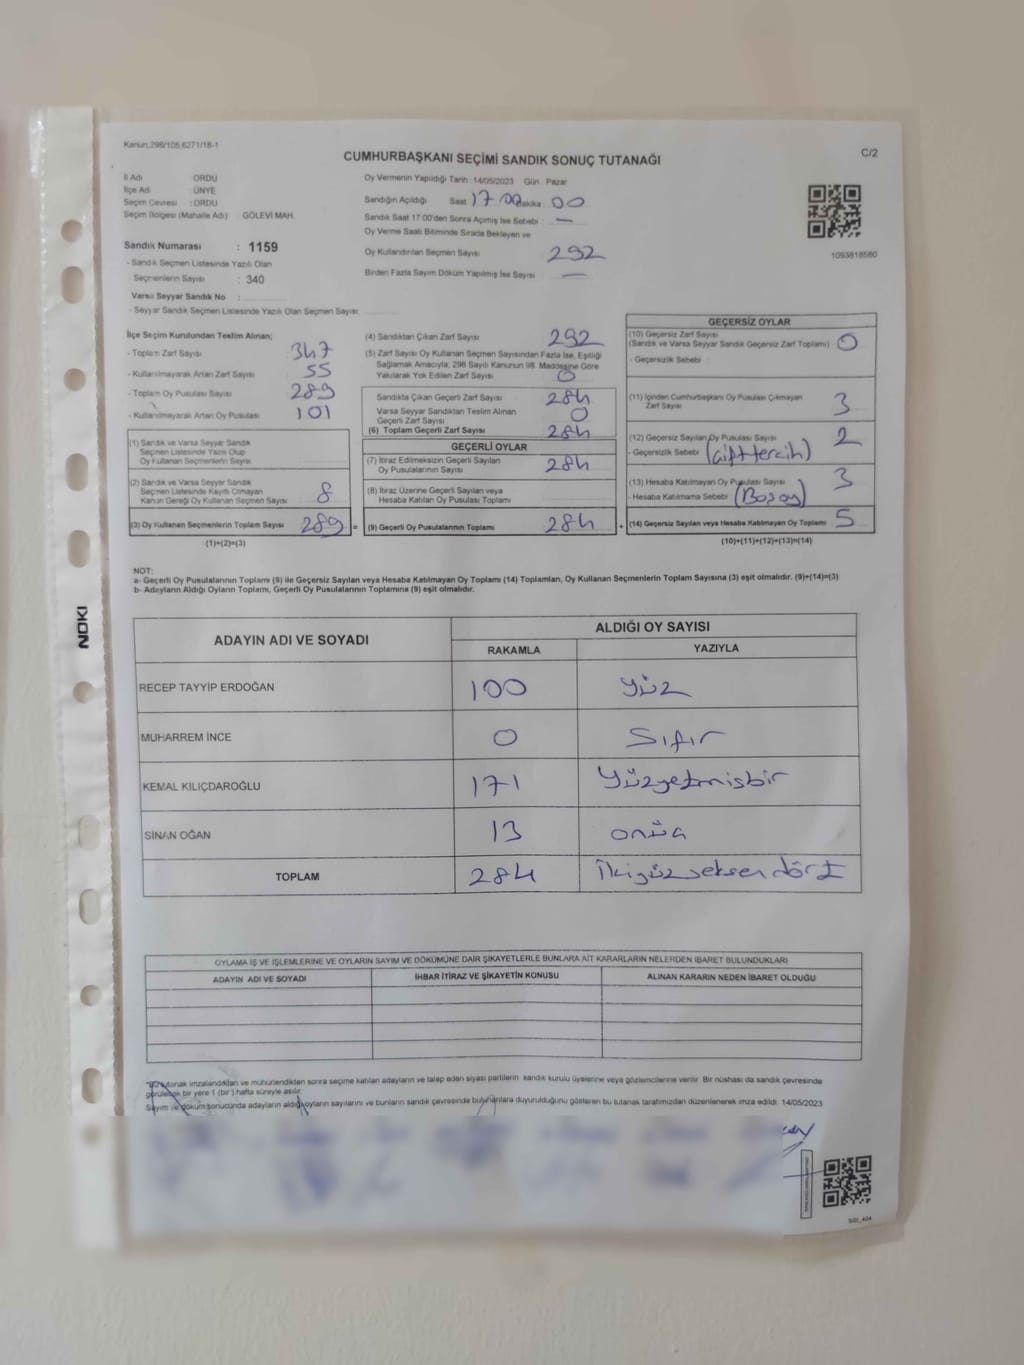 Kanun:298/105,6271/18-1
CUMHURBAŞKANI SEÇİMİ SANDIK SONUÇ TUTANAĞI
C/2
İl Adı ORDU
İlçe Adı ÜNYE
Seçim Çevresi : ORDU
Seçim Bölgesi (Mahalle Adı) GÖLEVİ MAH.
Oy Vermenin Yapıldığı Tarih : 14/05/2023 Gün : Pazar
Sandığın Açıldığı Saat 17:00 Dakika : 00
Sandık Saat 17:00'den Sonra Açımış İse Sebebi : —
Oy Verme Saati Bitiminde Sırada Bekleyen ve
Oy Kullandırılan Seçmen Sayısı 292
Birden Fazla Sayım Döküm Yapılmış İse Sayısı : —
1093818580
Sandık Numarası : 1159
- Sandık Seçmen Listesinde Yazılı Olan
Seçmenlerin Sayısı : 340
Varsa Seyyar Sandık No :
- Seyyar Sandık Seçmen Listesinde Yazılı Olan Seçmen Sayısı:
İlçe Seçim Kurulundan Teslim Alınan;
- Toplam Zarf Sayısı 347
- Kullanılmayarak Artan Zarf Sayısı : 55
- Toplam Oy Pusulası Sayısı 289
- Kullanılmayarak Artan Oy Pusulası 101
(1) Sandık ve Varsa Seyyar Sandık
Seçmen Listesinde Yazılı Olup
Oy Kullanan Seçmenlerin Sayısı
(2) Sandık ve Varsa Seyyar Sandık
Seçmen Listesinde Kayıtlı Olmayan
Kanun Gereği Oy Kullanan Seçmen Sayısı : 8
(3) Oy Kullanan Seçmenlerin Toplam Sayısı 289 =
(1)+(2)=(3)
(4) Sandıktan Çıkan Zarf Sayısı 292
(5) Zarf Sayısı Oy Kullanan Seçmen Sayısından Fazla İse, Eşitliği
Sağlamak Amacıyla, 298 Sayılı Kanunun 98. Maddesine Göre
Yakılarak Yok Edilen Zarf Sayısı : 0
Sandıkta Çıkan Geçerli Zarf Sayısı 284
Varsa Seyyar Sandıktan Teslim Alınan
Geçerli Zarf Sayısı 0
(6) Toplam Geçerli Zarf Sayısı 284
GEÇERLİ OYLAR
(7) İtiraz Edilmeksizin Geçerli Sayılan
Oy Pusulalarının Sayısı 284
(8) İtiraz Üzerine Geçerli Sayılan veya
Hesaba Katılan Oy Pusulası Toplamı
(9) Geçerli Oy Pusulalarının Toplamı 284 +
GEÇERSİZ OYLAR
(10) Geçersiz Zarf Sayısı
(Sandık ve Varsa Seyyar Sandık Geçersiz Zarf Toplamı) 0
- Geçersizlik Sebebi :
(11) İçinden Cumhurbaşkanı Oy Pusulası Çıkmayan
Zarf Sayısı 3
(12) Geçersiz Sayılan Oy Pusulası Sayısı 2
- Geçersizlik Sebebi (Çift tercih)
(13) Hesaba Katılmayan Oy Pusulası Sayısı 3
- Hesaba Katılmama Sebebi (Boş oy)
(14) Geçersiz Sayılan veya Hesaba Katılmayan Oy Toplamı 5
(10)+(11)+(12)+(13)=(14)
NOT:
a- Geçerli Oy Pusulalarının Toplamı (9) ile Geçersiz Sayılan veya Hesaba Katılmayan Oy Toplamı (14) Toplamları, Oy Kullanan Seçmenlerin Toplam Sayısına (3) eşit olmalıdır. (9)+(14)=(3)
b- Adayların Aldığı Oyların Toplamı, Geçerli Oy Pusulalarının Toplamına (9) eşit olmalıdır.
NOKI
ADAYIN ADI VE SOYADI
ALDIĞI OY SAYISI
RAKAMLA YAZIYLA
RECEP TAYYİP ERDOĞAN 100 Yüz
MUHARREM İNCE 0 Sıfır
KEMAL KILIÇDAROĞLU 171 Yüzyetmişbir
SİNAN OĞAN 13 onüç
TOPLAM 284 İkiyüzseksendört
OYLAMA İŞ VE İŞLEMLERİNE VE OYLARIN SAYIM VE DÖKÜMÜNE DAİR ŞİKAYETLERLE BUNLARA AİT KARARLARIN NELERDEN İBARET BULUNDUKLARI
ADAYIN ADI VE SOYADI İHBAR İTİRAZ VE ŞİKAYETİN KONUSU ALINAN KARARIN NEDEN İBARET OLDUĞU
*Bu tutanak imzalandıktan ve mühürlendikten sonra seçime katılan adayların ve talep eden siyasi partilerin sandık kurulu üyelerine veya gözlemcilerine verilir. Bir nüshası da sandık çevresinde
görülecek bir yere 1 (bir) hafta süreyle asılır.
Sayım ve döküm sonucunda adayların aldığı oyların sayılarını ve bunların sandık çevresinde bulunanlara duyurulduğunu gösteren bu tutanak tarafımızdan düzenlenerek imza edildi. 14/05/2023